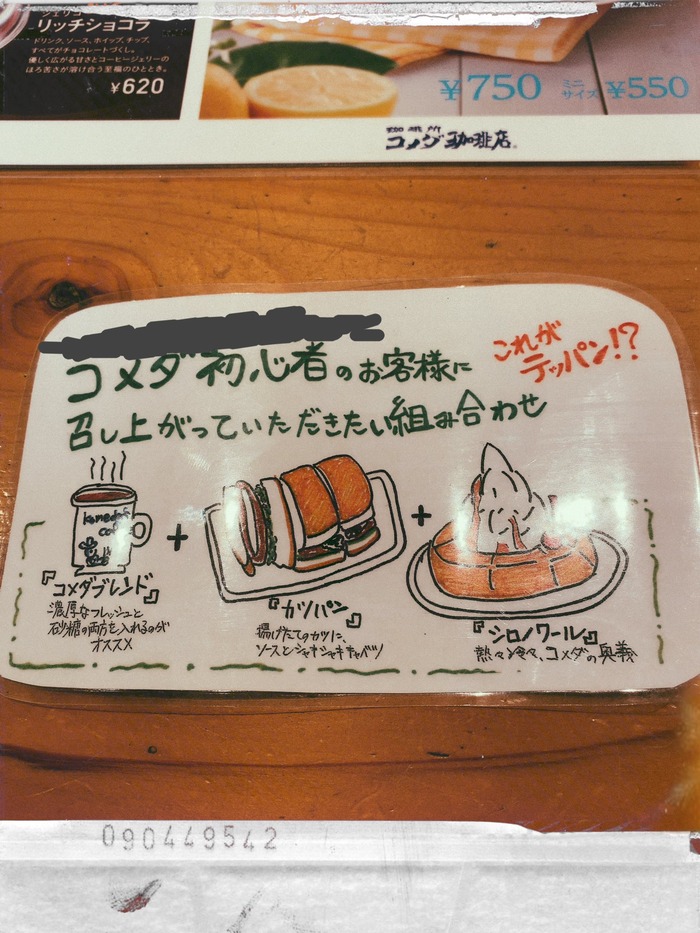 リッチショコラ
ドリンク、ソース、ホイップ、チップ、
すべてがチョコレートづくし。
優しく広がる甘さとコーヒージェリーの
ほろ苦さが溶け合う至福のひととき。
¥620
¥750 ミニサイズ ¥550
珈琲所
コメダ珈琲店
コメダ初心者のお客様に
これがテッパン!?
召し上がっていただきたい組み合わせ
Komeda's
+
+
『コメダブレンド』
濃厚なフレッシュと
砂糖の両方を入れるのが
オススメ
『カツパン』
揚げたてのカツに、
ソースとシャキシャキキャベツ
『シロノワール』
熱々冷々、コメダの奥義
090449542